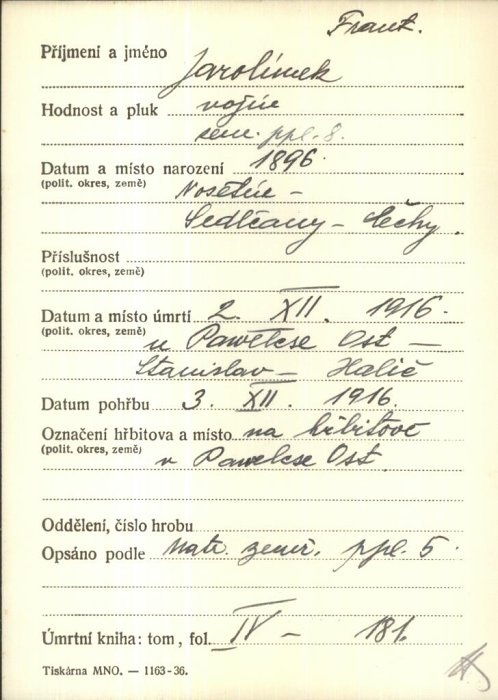 Frant.
Příjmení a jméno Jarolímek
Hodnost a pluk vojín
zem. ppl. 8.
Datum a místo narození 1896.
(polit. okres, země) Nosetín –
Sedlčany – Čechy.
Příslušnost
(polit. okres, země)
Datum a místo úmrtí 2. XII. 1916.
(polit. okres, země) u Pawelcse Ost –
Stanislav – Halič
Datum pohřbu 3. XII. 1916.
Označení hřbitova a místo na hřbitově
(polit. okres, země) v Pawelcse Ost
Oddělení, číslo hrobu
Opsáno podle Matr. zemř. ppl. 5.
Úmrtní kniha: tom, fol. IV – 181.
Tiskárna MNO. — 1163-36.